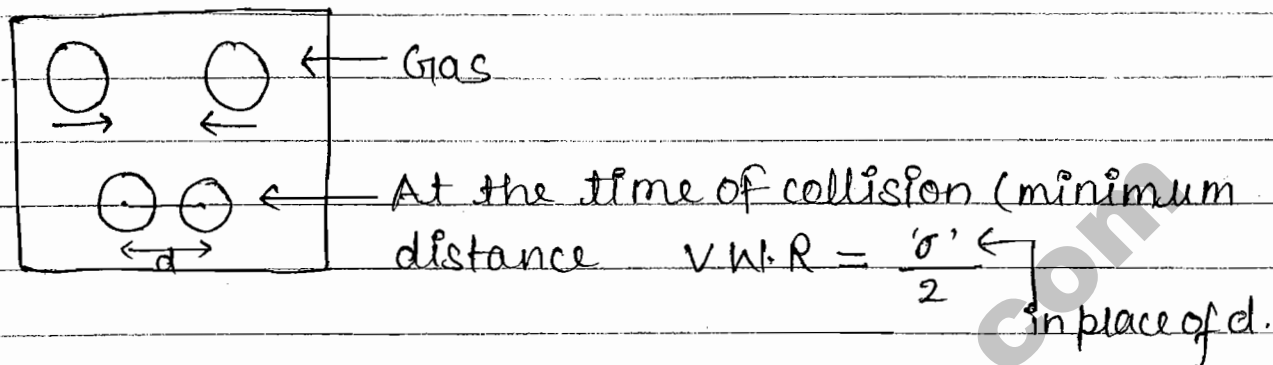 Gas
At the time of collision (minimum
distance V.W.R = 'σ'/2
in place of d.
d
com